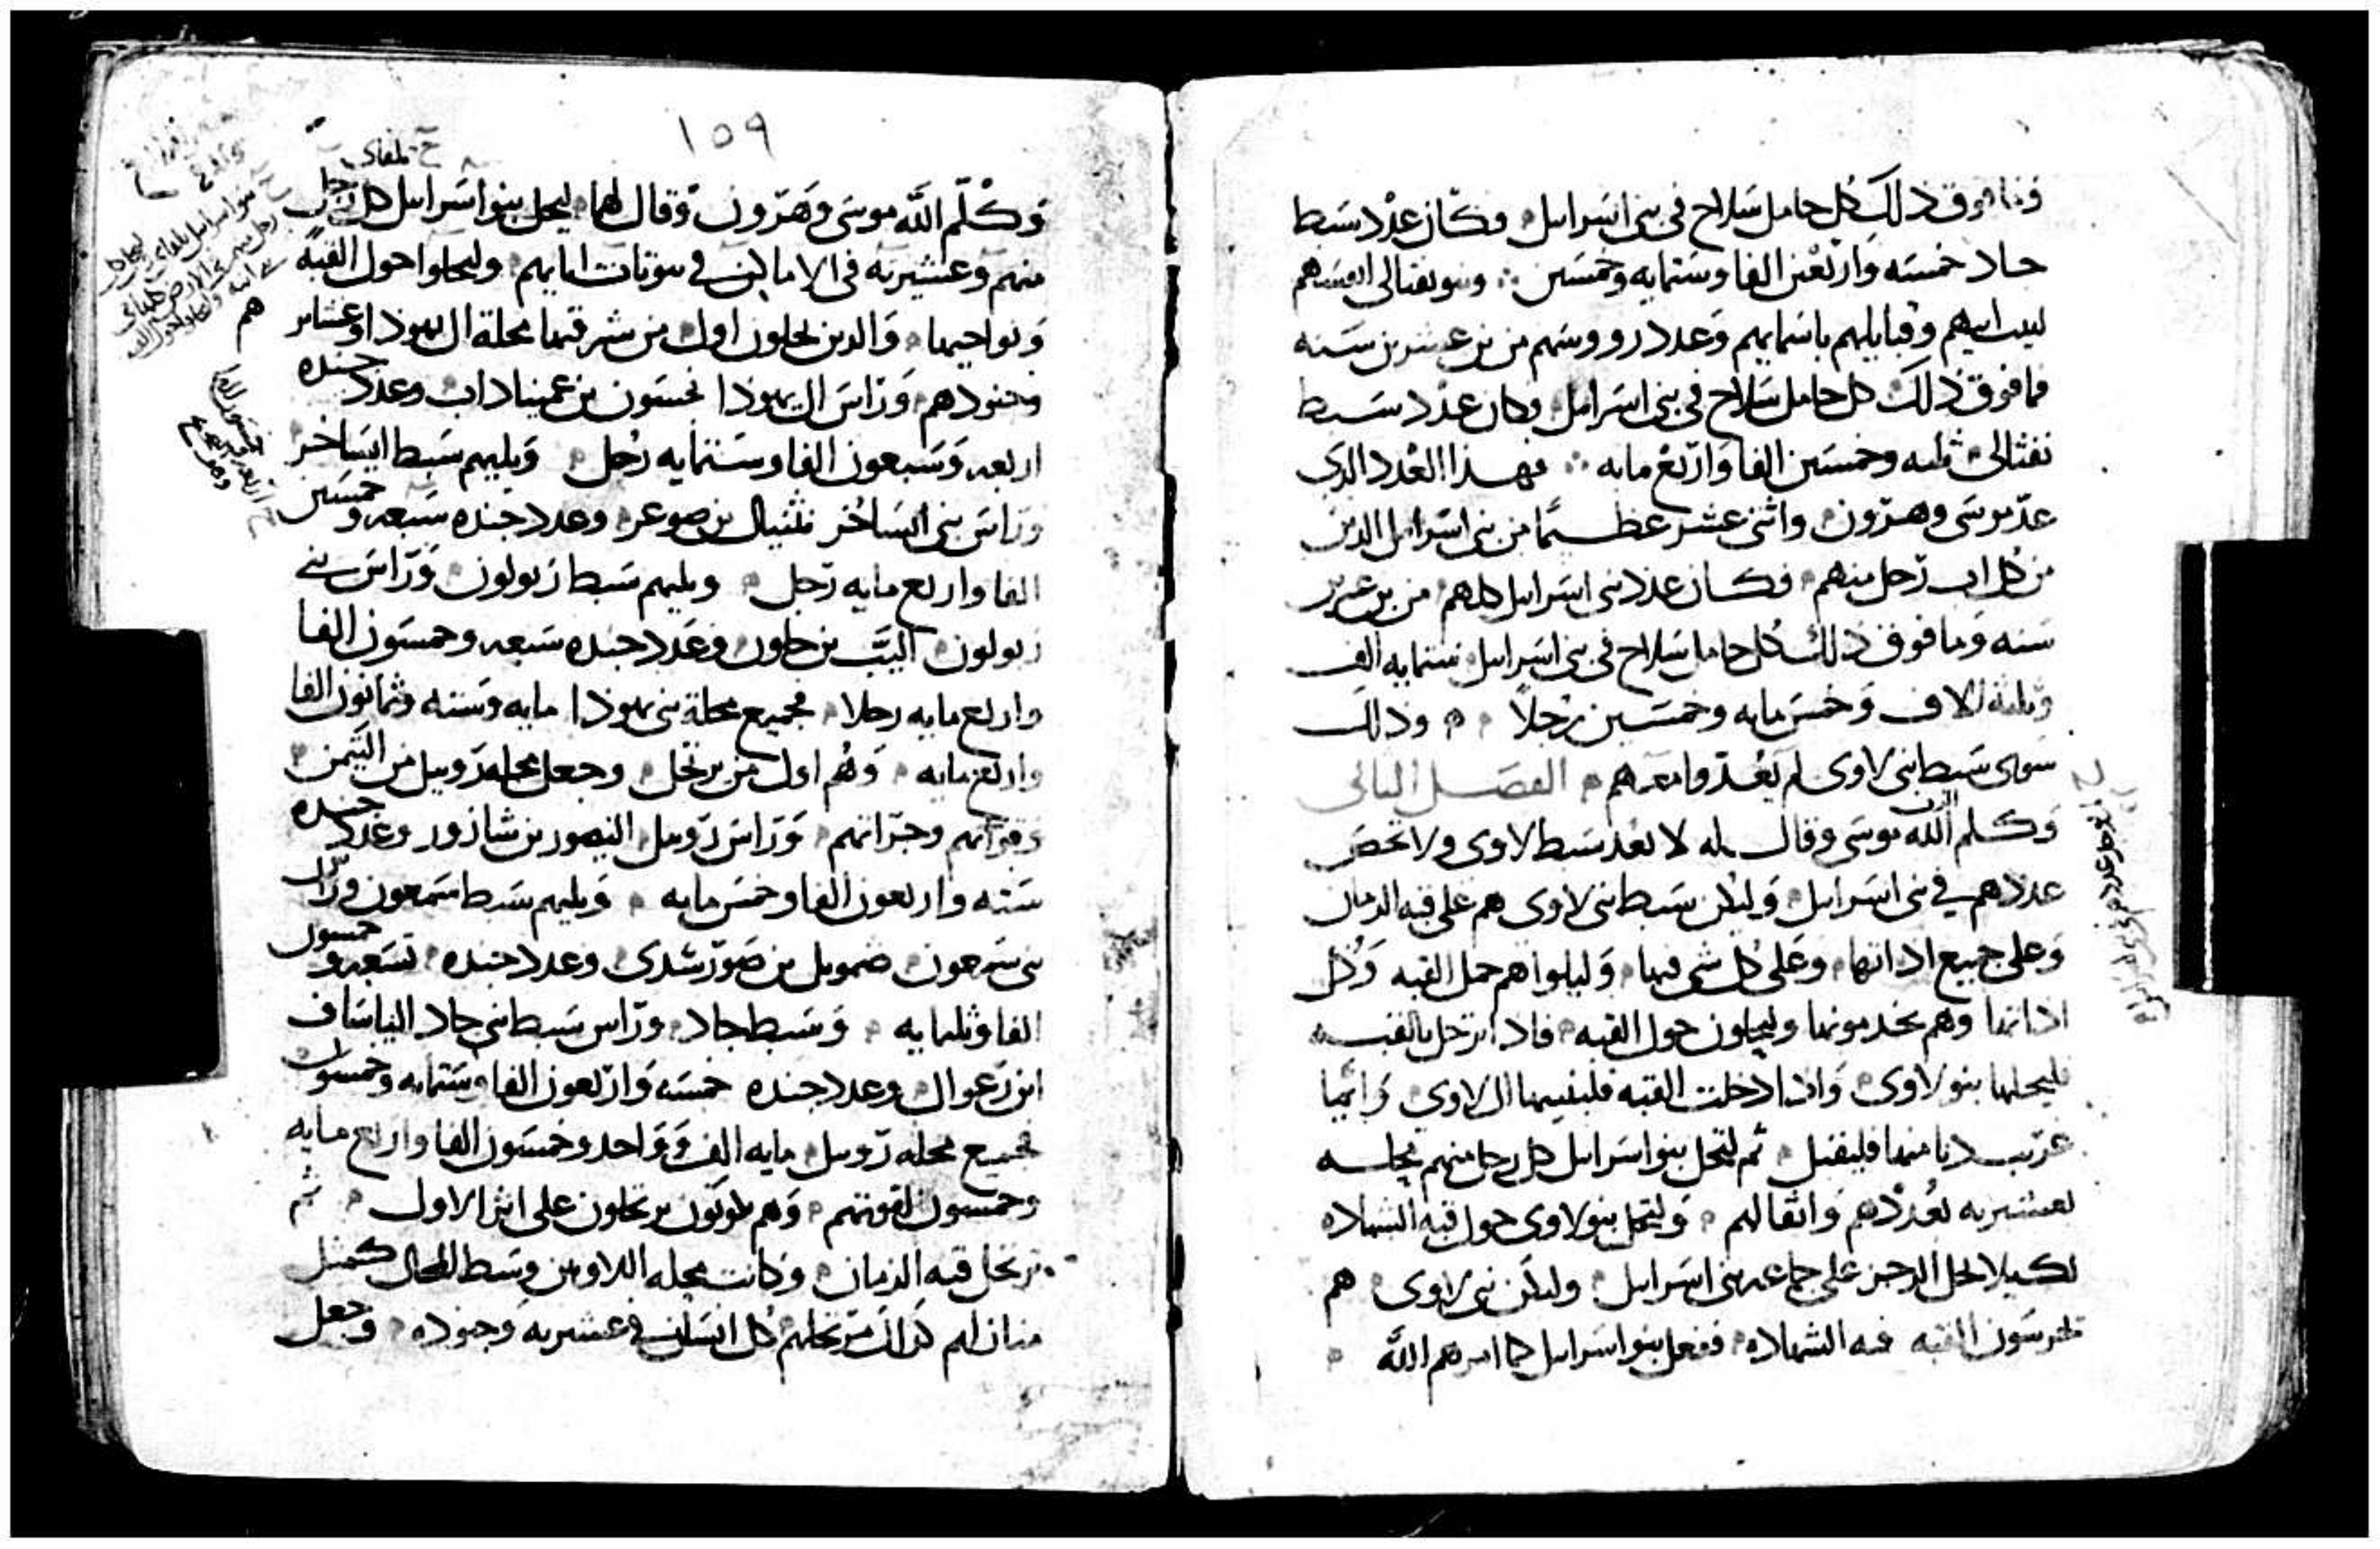 فما فوق ذلك كل حامل سلاح في بني اسرايل وكان عدد سبط
جاد خمسه واربعين الفا وستمايه وخمسين وبنو نفتالي انفسهم
لبيت ابيهم وقبايلهم باسمايهم وعدد رووسهم من بن عشرين سنه
فما فوق ذلك كل حامل سلاح في بني اسرايل وكان عدد سبط
نفتالي ثلثه وخمسين الفا واربع مايه فهذا العدد الذي
عد موسى وهرون واثني عشر عظيما من بني اسرايل الذين
من كل اب رجل منهم فكان عدد بني اسرايل كلهم من بن عشرين
سنه وما فوق ذلك كل حامل سلاح في بني اسرايل ستمايه الف
وثلثه الاف وخمس مايه وخمسين رجلا وذلك
سوى سبط بني لاوى لم يعدوا معهم الفصل الثاني
وكلم الله موسى وقال له لا تعد سبط لاوى ولا تحص
عددهم في بني اسرايل وليكن سبط بني لاوى هم على قبه الزمان
وعلى جميع اداتها وعلى كل شي فيها وليلوا هم حمل القبه وكل
اداتها وهم يخدمونها وليحلون حول القبه فاذا ارتحل بالقبه
فليحملها بنو لاوى واذا دخلت القبه فلينصبها ال لاوى وايما
غريب دنا منها فليقتل ثم ليحل بنو اسرايل كل رجل منهم محلته
لعشيرته بعددهم واثقالهم وليحل بنو لاوى حول قبه الشهاده
لكيلا يحل الرجز على جماعه بني اسرايل وليكن بني لاوى هم
يحرسون القبه قبه الشهاده ففعل بنو اسرايل كما امرهم الله
١٥٩
وكلم الله موسى وهرون وقال لهما ليحل بنو اسرايل كل رجل
منهم وعشيرته في الاماكن في بيوتات ابايهم وليحلوا حول القبه
ونواحيها والذين يحلون اول من شرقيها محلة ال يهوذا وعشاير
وجنودهم وراس ال يهوذا نحسون بن عميناداب وعدد جنده
اربعه وسبعون الفا وستمايه رجل ويليهم سبط ايساخر
وراس بني ايساخر نثنيال بن صوعر وعدد جنده سبعه وخمسين
الفا واربع مايه رجل ويليهم سبط زبولون وراس بني
زبولون اليب بن حلون وعدد جنده سبعه وخمسون الفا
واربع مايه رجلا فجميع محلة بني يهوذا مايه وسته وثمانون الفا
واربع مايه وهم اول من يرتحل وجعل محله روبيل من التيمن
وقراتهم وجزاتهم وراس روبيل اليصور بن شاذور وعدد جنده
سته واربعون الفا وخمس مايه ويليهم سبط سمعون وراس
بني سمعون صموييل بن صورشدى وعدد جنده تسعه وخمسون
الفا وثلمايه وسبط جاد وراس سبط بني جاد الياساف
ابن رعوال وعدد جنده خمسه واربعون الفا وستمايه وخمسون
فجميع محله روبيل مايه الف وواحد وخمسون الفا واربع مايه
وخمسون لقوتهم وهم يكونون يرتحلون على اثر الاول ثم
ترتحل قبه الزمان وكانت محله اللاويين وسط المحال كمثل
منازلهم كذلك مرتحلهم كل انسان في عشيرته وجنوده وجعل